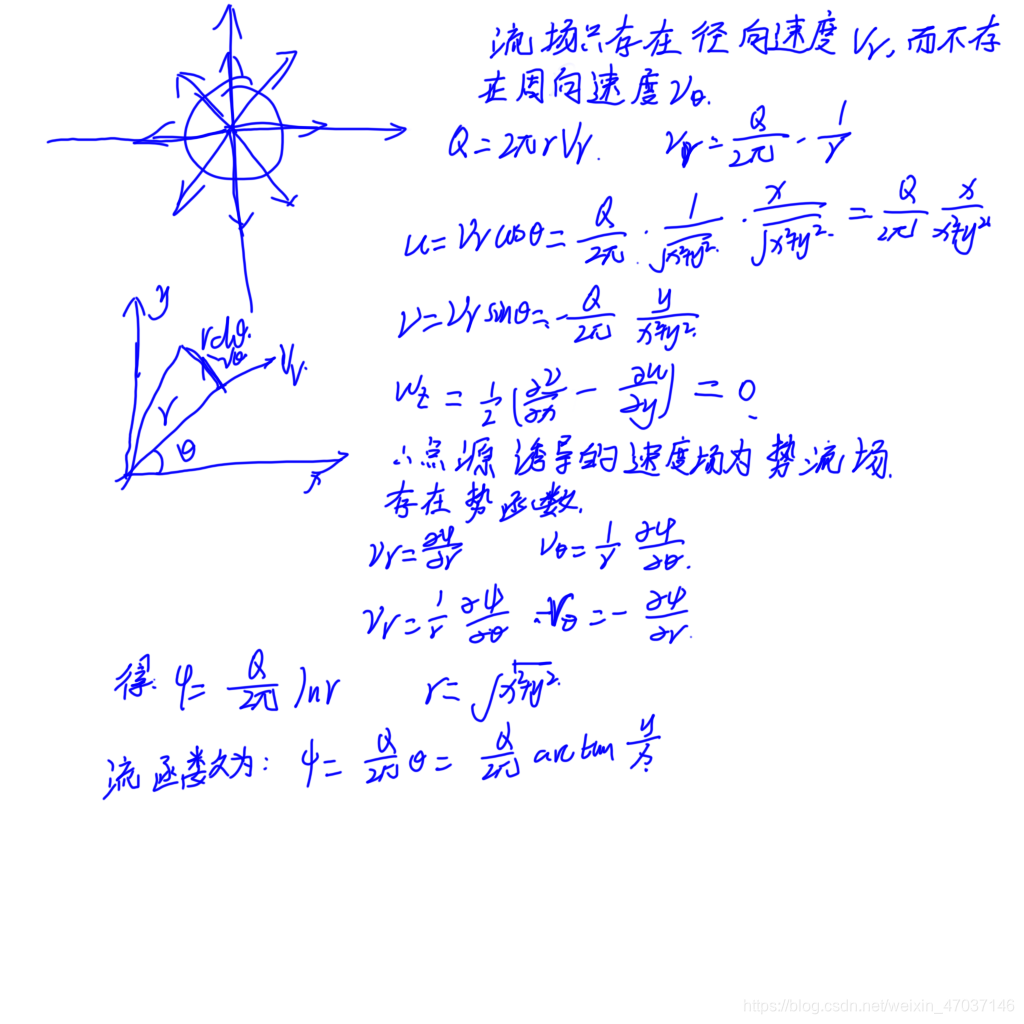 流场只存在径向速度 Vr,而不存
在周向速度 Vθ.
Q=2πrVr. Vr=Q/2π·1/r
u=Vr cosθ=Q/2π·1/√x²+y²·x/√x²+y²=Q/2π x/x²+y²
V=Vr sinθ=-Q/2π y/x²+y²
y
rdθ.
Vθ
Vr
r
θ
x
wz=1/2(∂V/∂x-∂u/∂y)=0
∴点源诱导的速度场为势流场.
存在势函数.
Vr=∂φ/∂r Vθ=1/r ∂φ/∂θ.
Vr=1/r ∂ψ/∂θ Vθ=-∂ψ/∂r.
得: φ=Q/2π lnr r=√x²+y²
流函数为: ψ=Q/2π θ=Q/2π arc tan y/x
https://blog.csdn.net/weixin_47037146